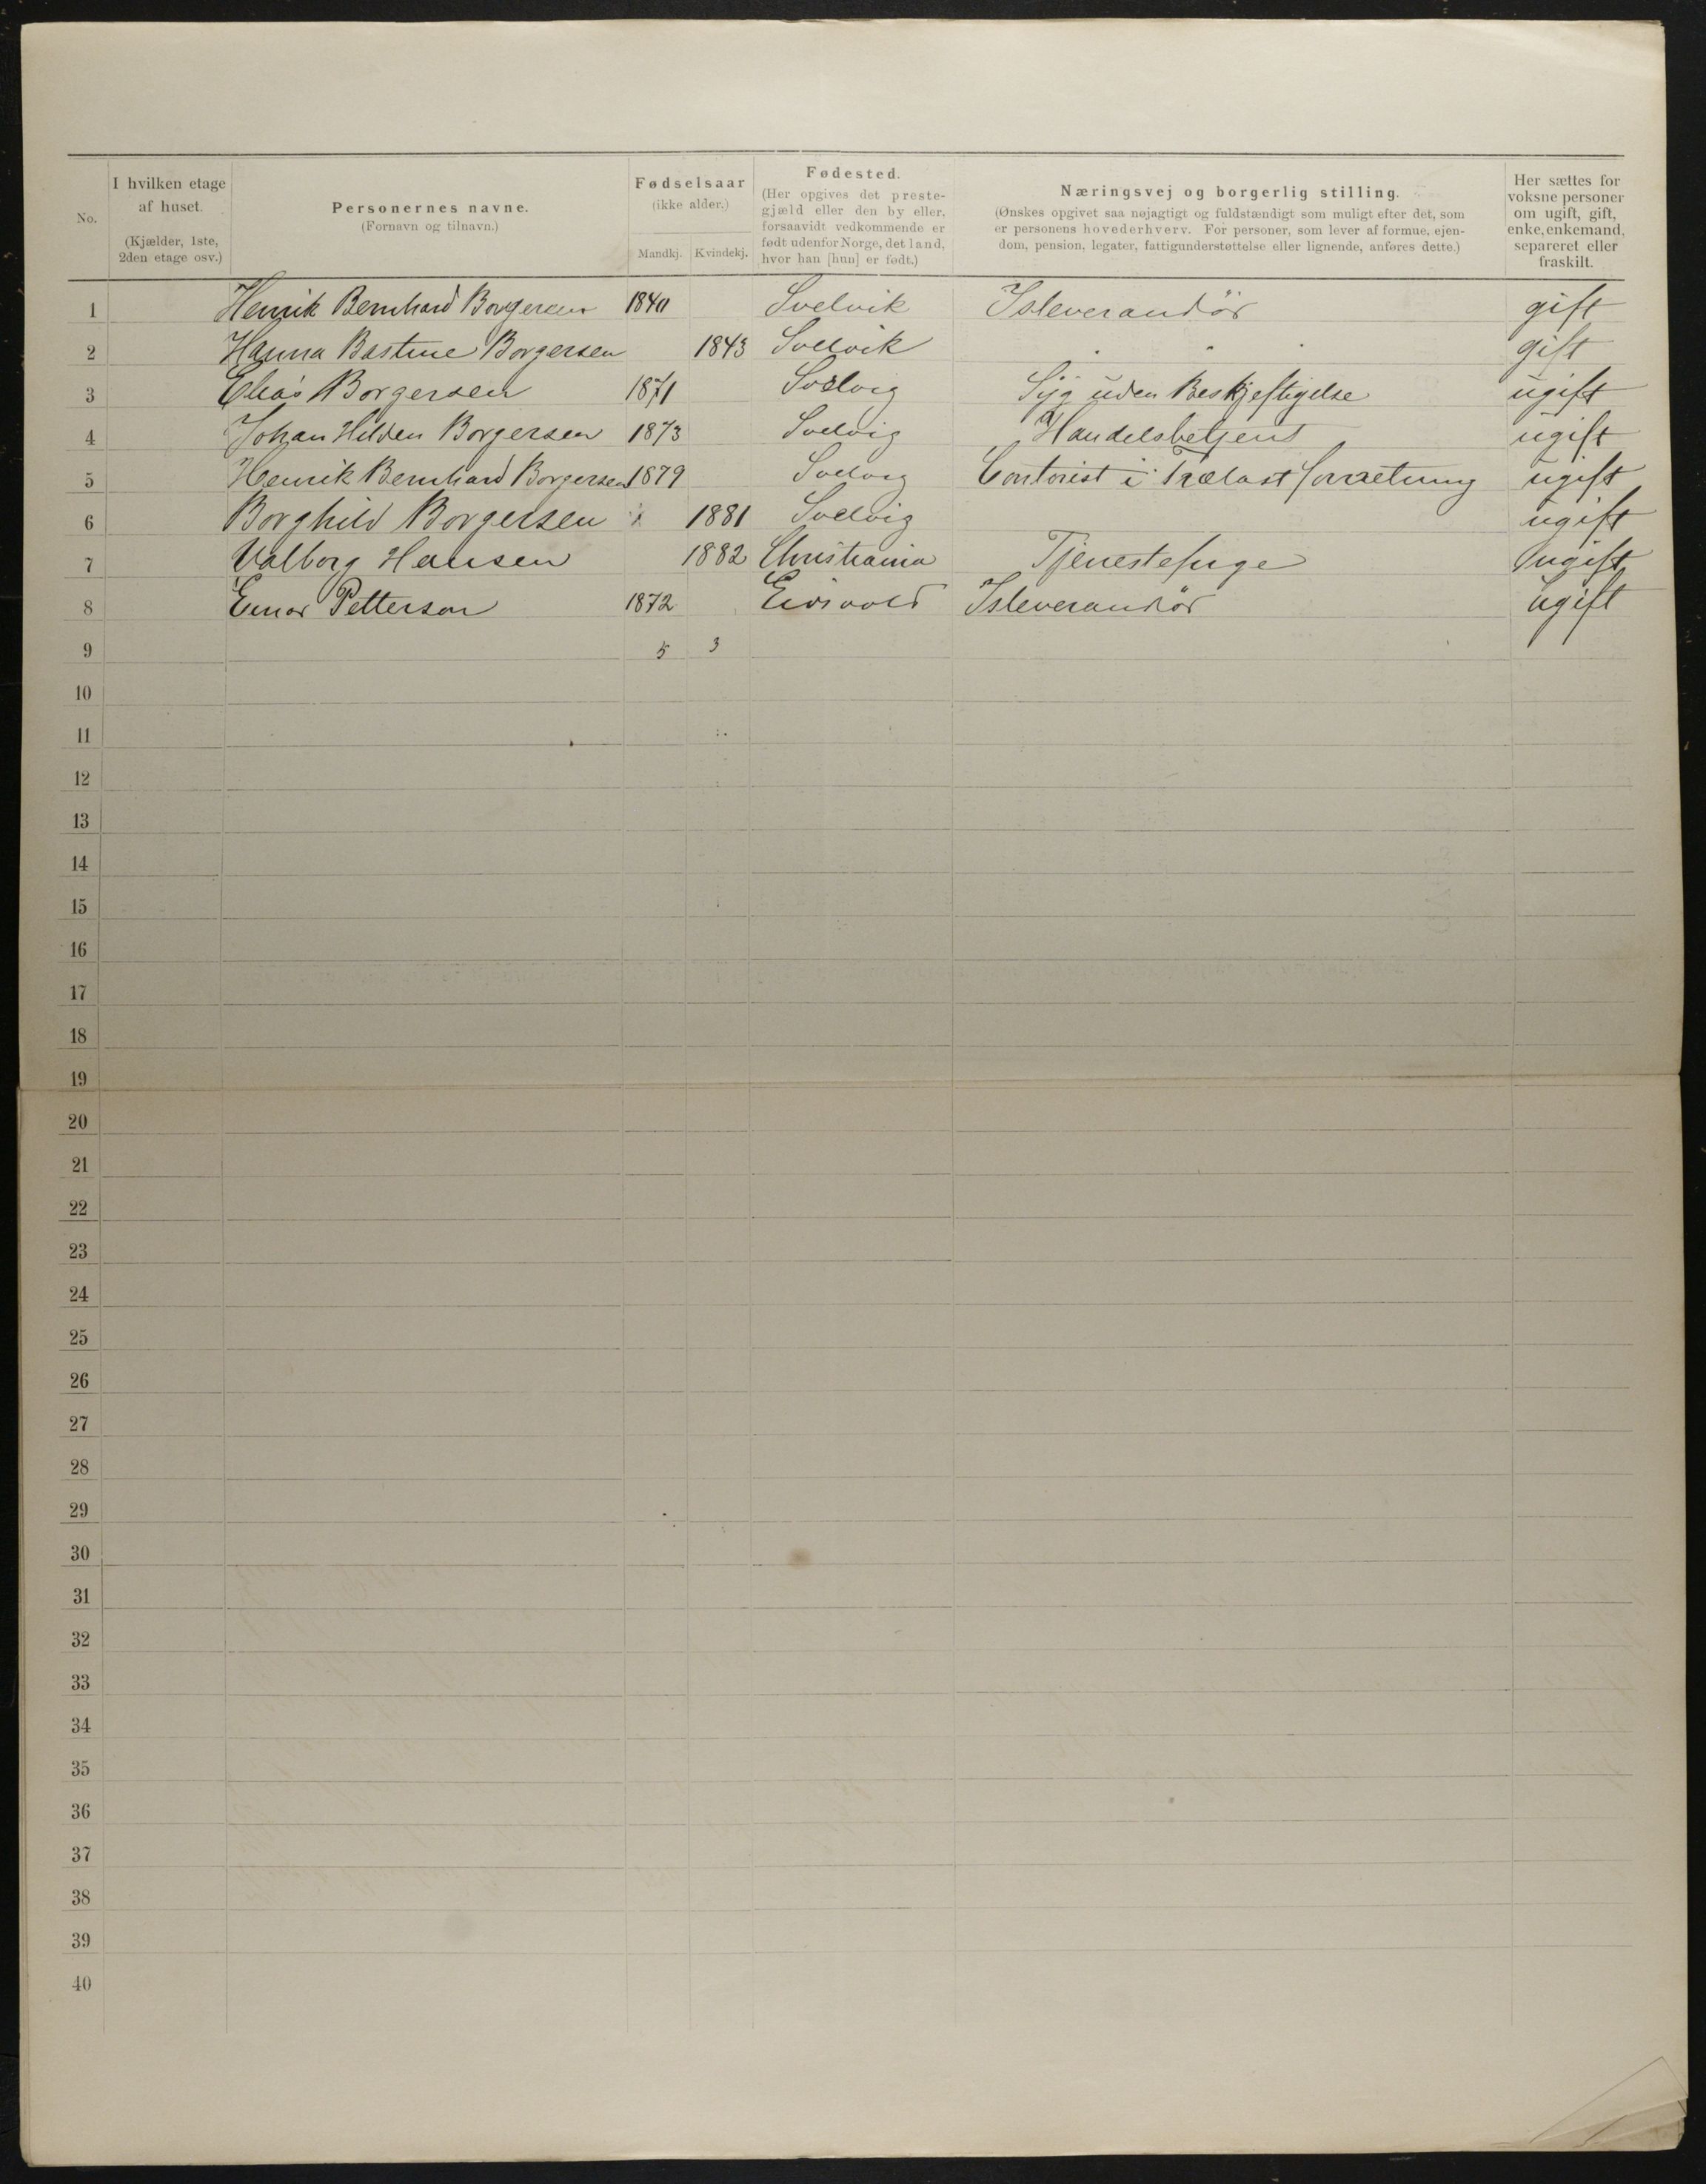 No.
I hvilken etage af huset. (Kjælder, 1ste, 2den etage osv.)
Personernes navne. (Fornavn og tilnavn.)
Fødselsaar (ikke alder.)
Mandkj. Kvindekj.
Fødested. (Her opgives det prestegjæld eller den by eller, forsaavidt vedkommende er født udenfor Norge, det land, hvor han [hun] er født.)
Næringsvej og borgerlig stilling. (Ønskes opgivet saa nøjagtigt og fuldstændigt som muligt efter det, som er personens hovederhverv. For personer, som lever af formue, ejendom, pension, legater, fattigunderstøttelse eller lignende, anføres dette.)
Her sættes for voksne personer om ugift, gift, enke, enkemand, separeret eller fraskilt.
1 Henrik Bernhard Borgersen 1840 Svelvik Isleverandør gift
2 Hanna Bastine Borgersen 1843 Svelvik " " " gift
3 Elias Borgersen 1871 Svelvig Syg uden Beskjeftigelse ugift
4 Johan Hilden Borgersen 1873 Svelvig Handelsbetjent ugift
5 Henrik Bernhard Borgersen 1879 Svelvig Contorist i Trælastforretning ugift
6 Borghild Borgersen 1881 Svelvig ugift
7 Valborg Hansen 1882 Christiania Tjenestepige ugift
8 Einar Petterson 1872 Eidsvold Isleverandør ugift
9 5 3
10
11
12
13
14
15
16
17
18
19
20
21
22
23
24
25
26
27
28
29
30
31
32
33
34
35
36
37
38
39
40